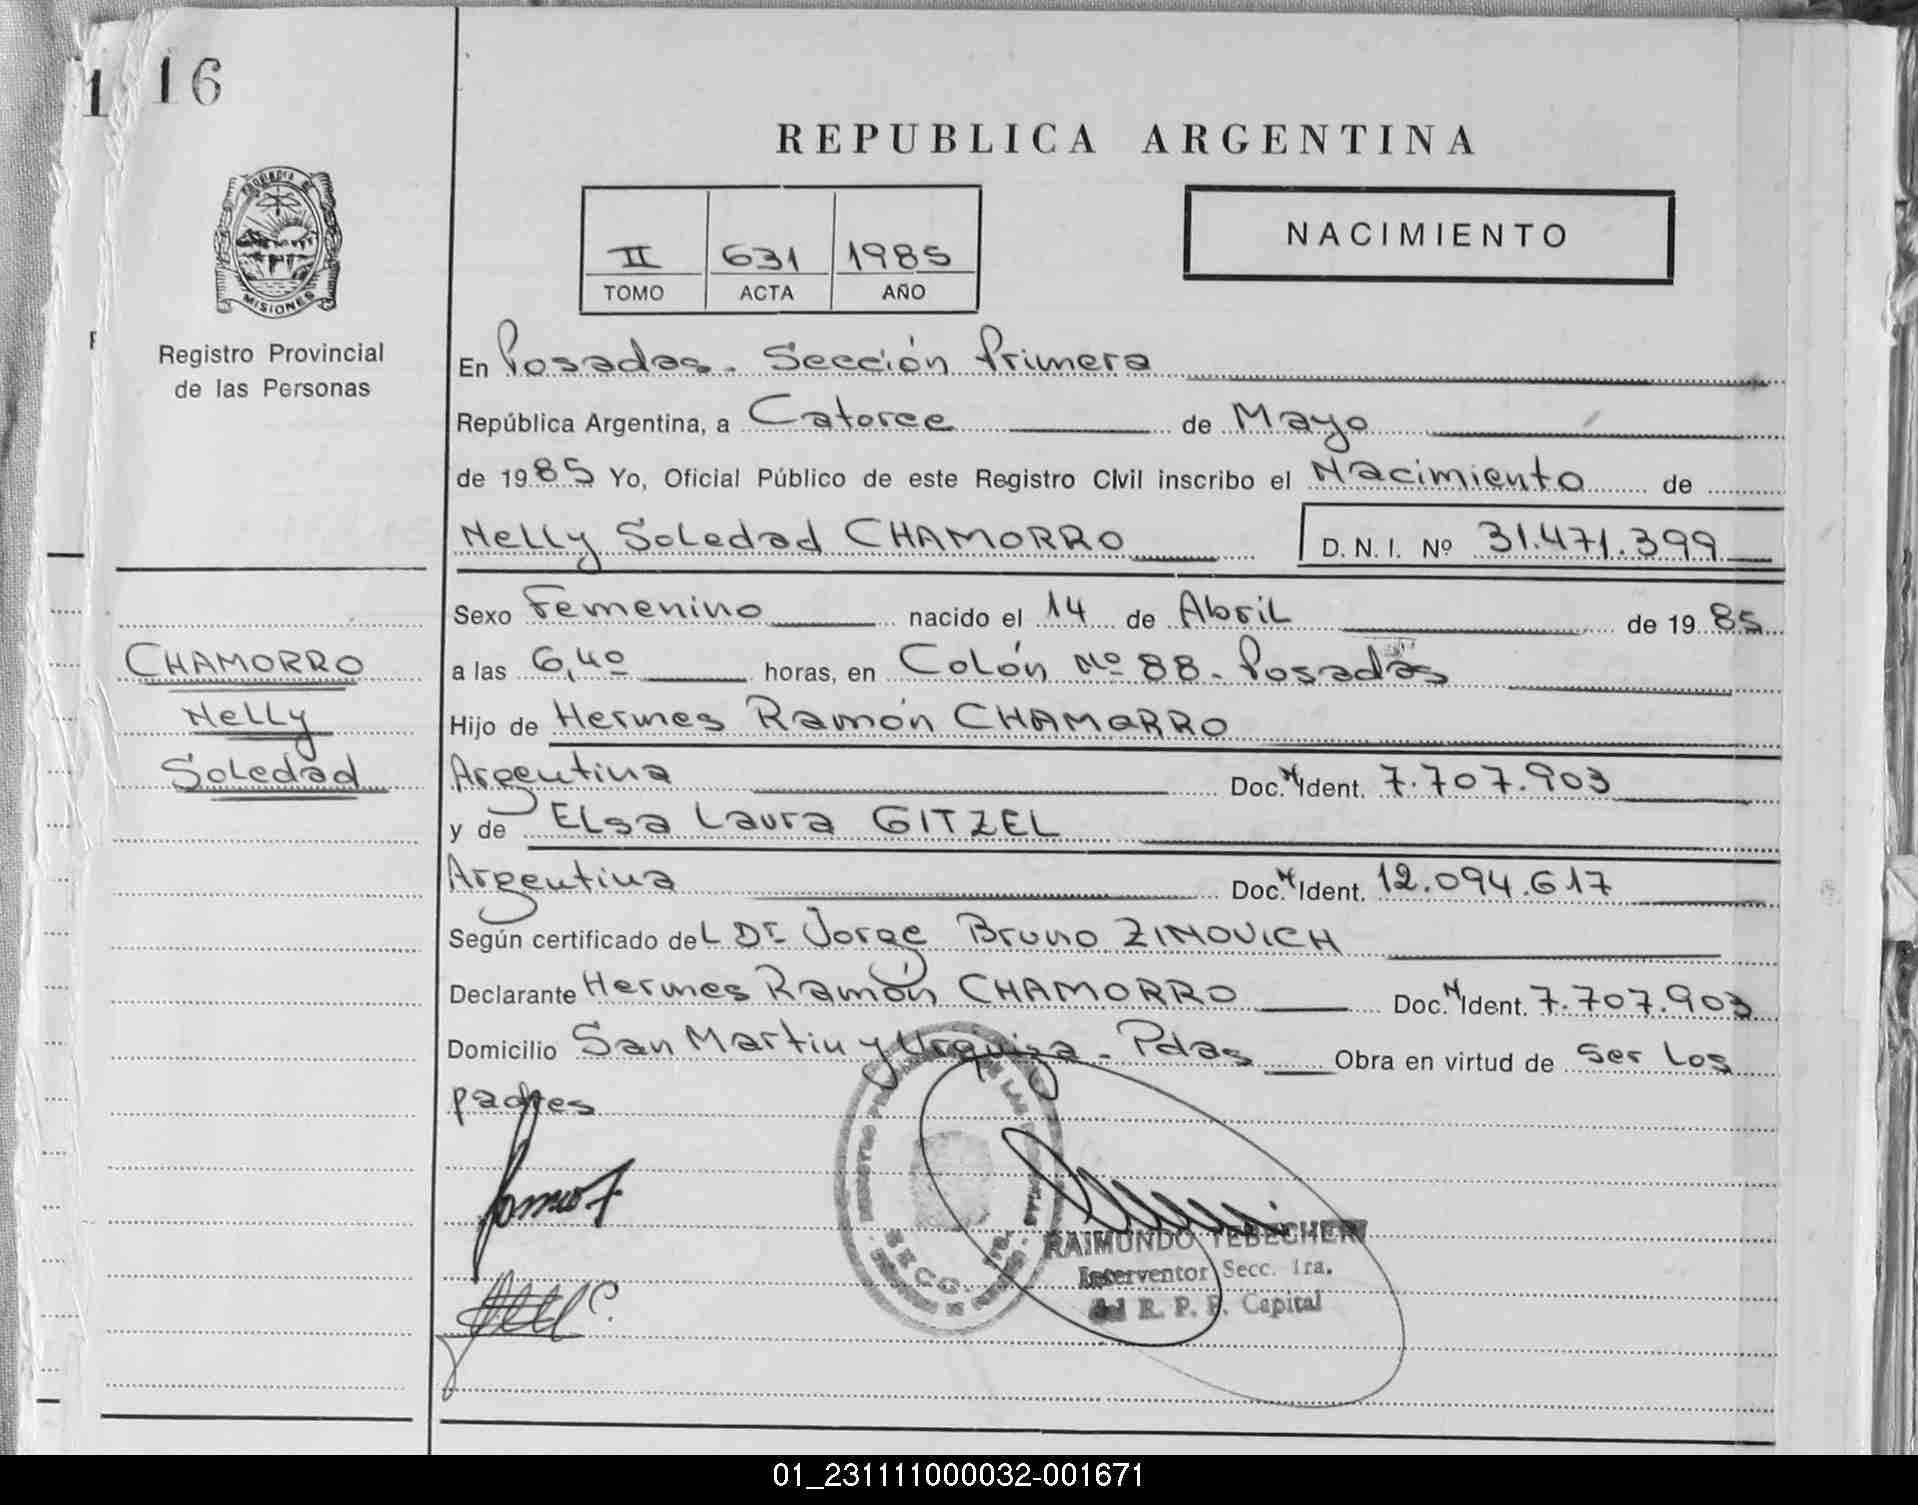 1 16
REPUBLICA ARGENTINA
MISIONES
Registro Provincial
de las Personas
II 631 1985
TOMO ACTA AÑO
NACIMIENTO
En Posadas. Sección Primera
República Argentina, a Catorce de Mayo
de 1985 Yo, Oficial Público de este Registro Civil inscribo el Nacimiento de
Nelly Soledad CHAMORRO D.N.I. Nº 31.471.399
Sexo Femenino nacido el 14 de Abril de 1985
CHAMORRO
Nelly
Soledad
a las 6,40 horas, en Colón Nº 88. Posadas
Hijo de Hermes Ramón CHAMORRO
Argentina Doc. N Ident. 7.707.903
y de Elsa Laura GITZEL
Argentina Doc. N Ident. 12.094.617
Según certificado del Dr Jorge Bruno ZIMOVICH
Declarante Hermes Ramón CHAMORRO Doc. N Ident. 7.707.903
Domicilio San Martin y Urquiza - Pdas Obra en virtud de ser los
padres
SECC. 1ra.
RAIMUNDO TEBECHERI
Interventor Secc. 1ra.
del R. P. P. Capital
01_231111000032-001671